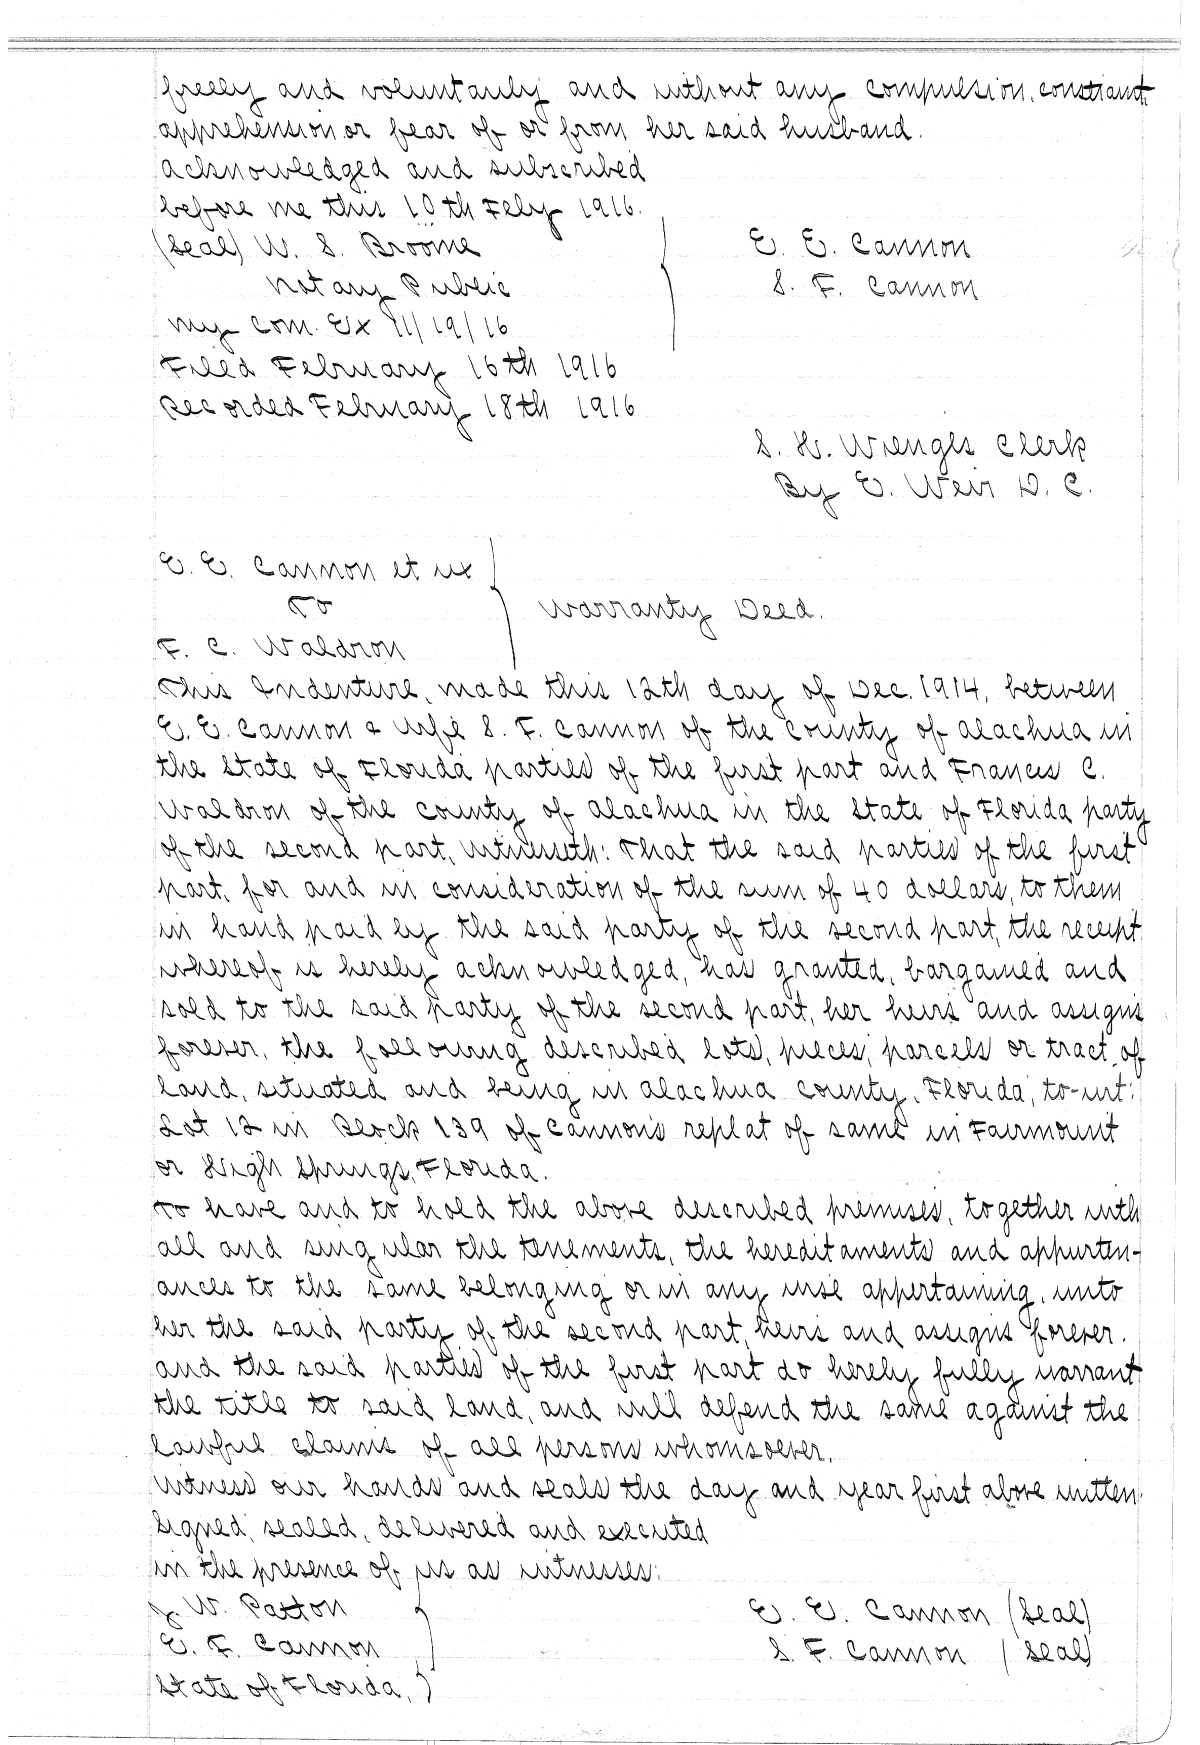 freely and voluntarily and without any compulsion, constraint,
apprehension or fear of or from her said husband.
Acknowledged and subscribed
before me this 10th Feby 1916.
(Seal) W. S. Broome
E. E. Cannon
Notary Public
S. F. Cannon
My Com. Ex 11/19/16
Filed February 16th 1916
Recorded February 18th 1916
S. H. Wienges Clerk
By E. Weir D. C.
E. E. Cannon et ux
To
Warranty Deed.
F. C. Waldron
This Indenture, made this 12th day of Dec. 1914, between
E. E. Cannon & wife S. F. Cannon of the County of Alachua in
the State of Florida parties of the first part and Francis C.
Waldron of the County of Alachua in the State of Florida party
of the second part, Witnesseth: That the said parties of the first
part, for and in consideration of the sum of 40 dollars, to them
in hand paid by the said party of the second part, the receipt
whereof is hereby acknowledged, has granted, bargained and
sold to the said party of the second part, her heirs and assigns
forever, the following described lots, pieces, parcels or tract of
land, situated and being in Alachua County, Florida, to-wit:
Lot 12 in Block 139 of Cannon's replat of same in Fairmount
or High Springs, Florida.
To have and to hold the above described premises, together with
all and singular the tenements, the hereditaments and appurten-
ances to the same belonging or in any wise appertaining, unto
her the said party of the second part, heirs and assigns forever.
And the said parties of the first part do hereby fully warrant
the title to said land, and will defend the same against the
lawful claims of all persons whomsoever.
Witness our hands and seals the day and year first above written.
Signed, sealed, delivered and executed
in the presence of us as witnesses:
J. W. Patton
E. E. Cannon (Seal)
E. F. Cannon
S. F. Cannon (Seal)
State of Florida,